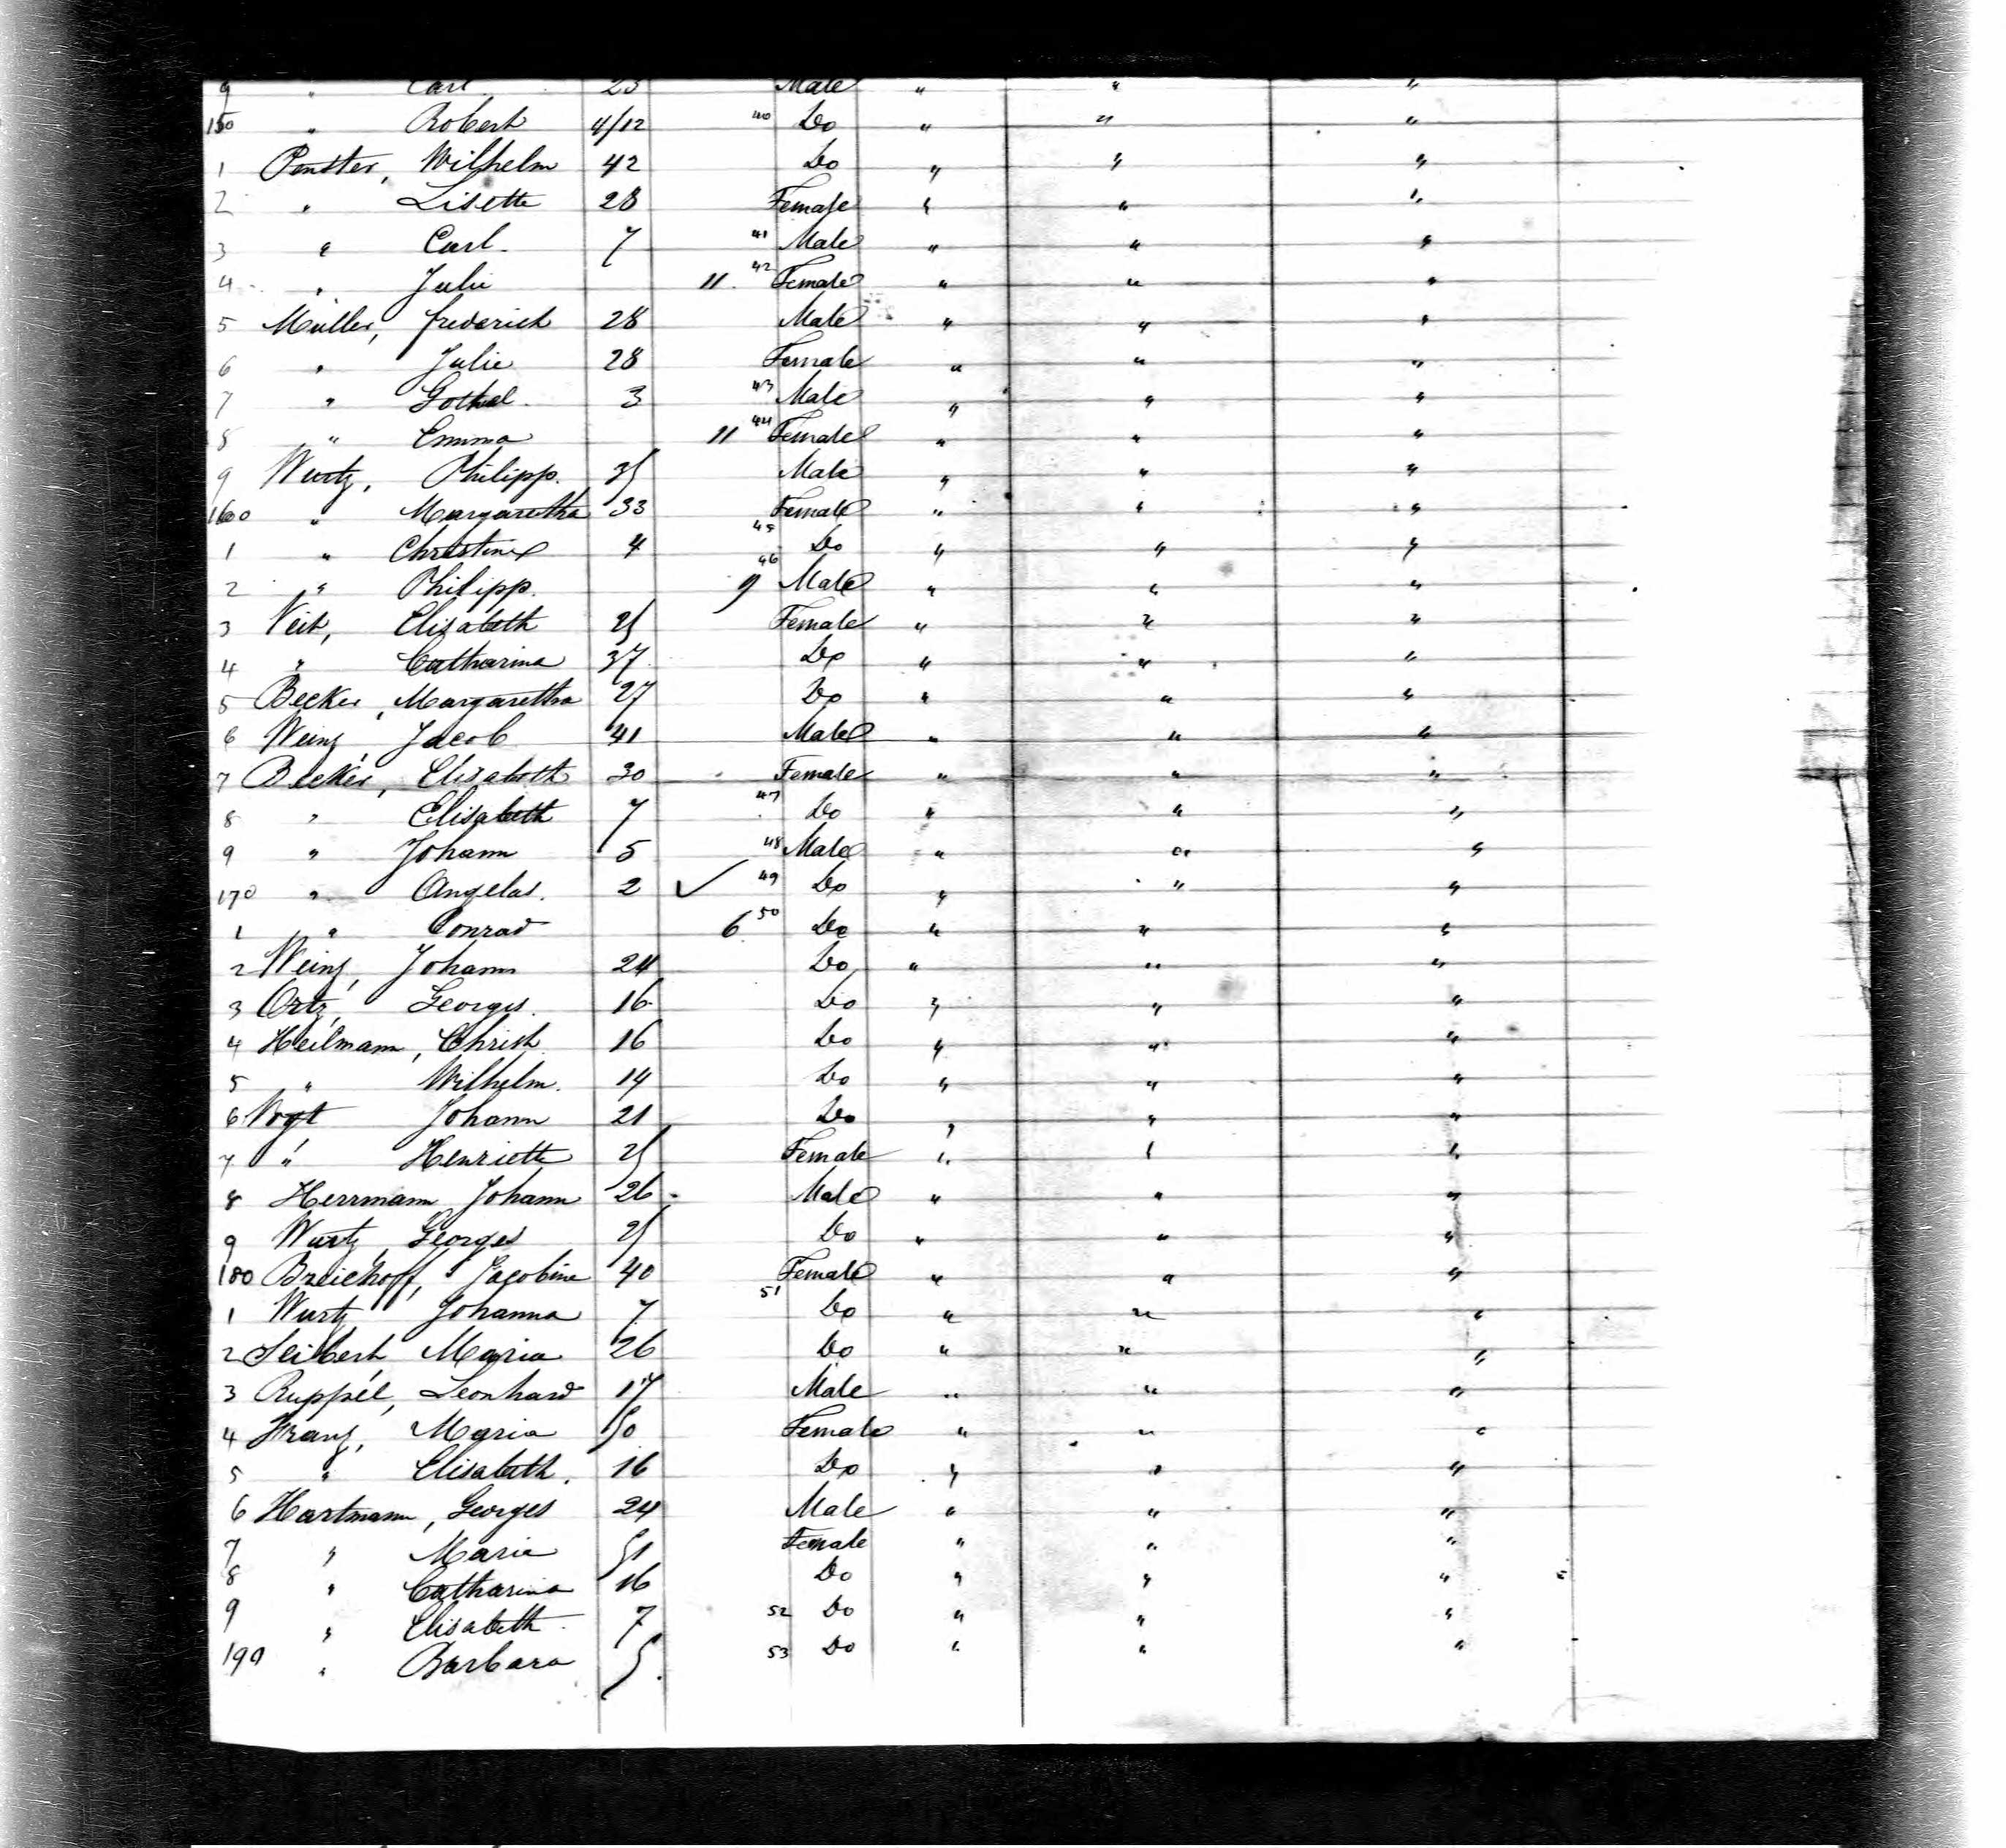 9 " Carl 23 Male " " "
150 " Robert 4/12 40 Do " " "
1 Penster, Wilhelm 42 Do " " "
2 " Lisette 28 Female " " "
3 " Carl. 7 41 Male " " "
4 " Julie 11. 42 Female " " "
5 Müller, Frederich 28 Male " " "
6 " Julie 28 Female " " "
7 " Gothel. 3 43 Male " " "
8 " Emma 11 44 Female " " "
9 Wurtz, Philipp. 35 Male " " "
160 " Margaretha 33 Female " " "
1 " Christine 4 45 Do " " "
2 " Philipp. 9 46 Male " " "
3 Veit, Elisabeth 25 Female " " "
4 " Catharina 37 Do " " "
5 Becker, Margaretha 27 Do " " "
6 Weinz, Jacob 41 Male " " "
7 Becker, Elisabeth 30 Female " " "
8 " Elisabeth 7 47 Do " " "
9 " Johann 5 48 Male " " "
170 " Angelas. 2 ✓ 49 Do " " "
1 " Conrad 6 50 Do " " "
2 Weinz, Johann 24 Do " " "
3 Ortz, Georges. 16 Do " " "
4 Heilmann, Christ 16 Do " " "
5 " Wilhelm. 14 Do " " "
6 Vogt Johann 21 Do " " "
7 " Henriette 25 Female " " "
8 Herrmann Johann 26 Male " " "
9 Wurtz, Georges 25 Do " " "
180 Breickoff, Jacobine 40 Female " " "
1 Wurtz Johanna 7 51 Do " " "
2 Seibert, Maria 26 Do " " "
3 Ruppel, Leonhard 17 Male " " "
4 Franz, Maria 50 Female " " "
5 " Elisabeth. 16 Do " " "
6 Hartmann, Georges 24 Male " " "
7 " Marie 51 Female " " "
8 " Catharina 16 Do " " "
9 " Elisabeth. 7 52 Do " " "
190 " Barbara 5. 53 Do " " "